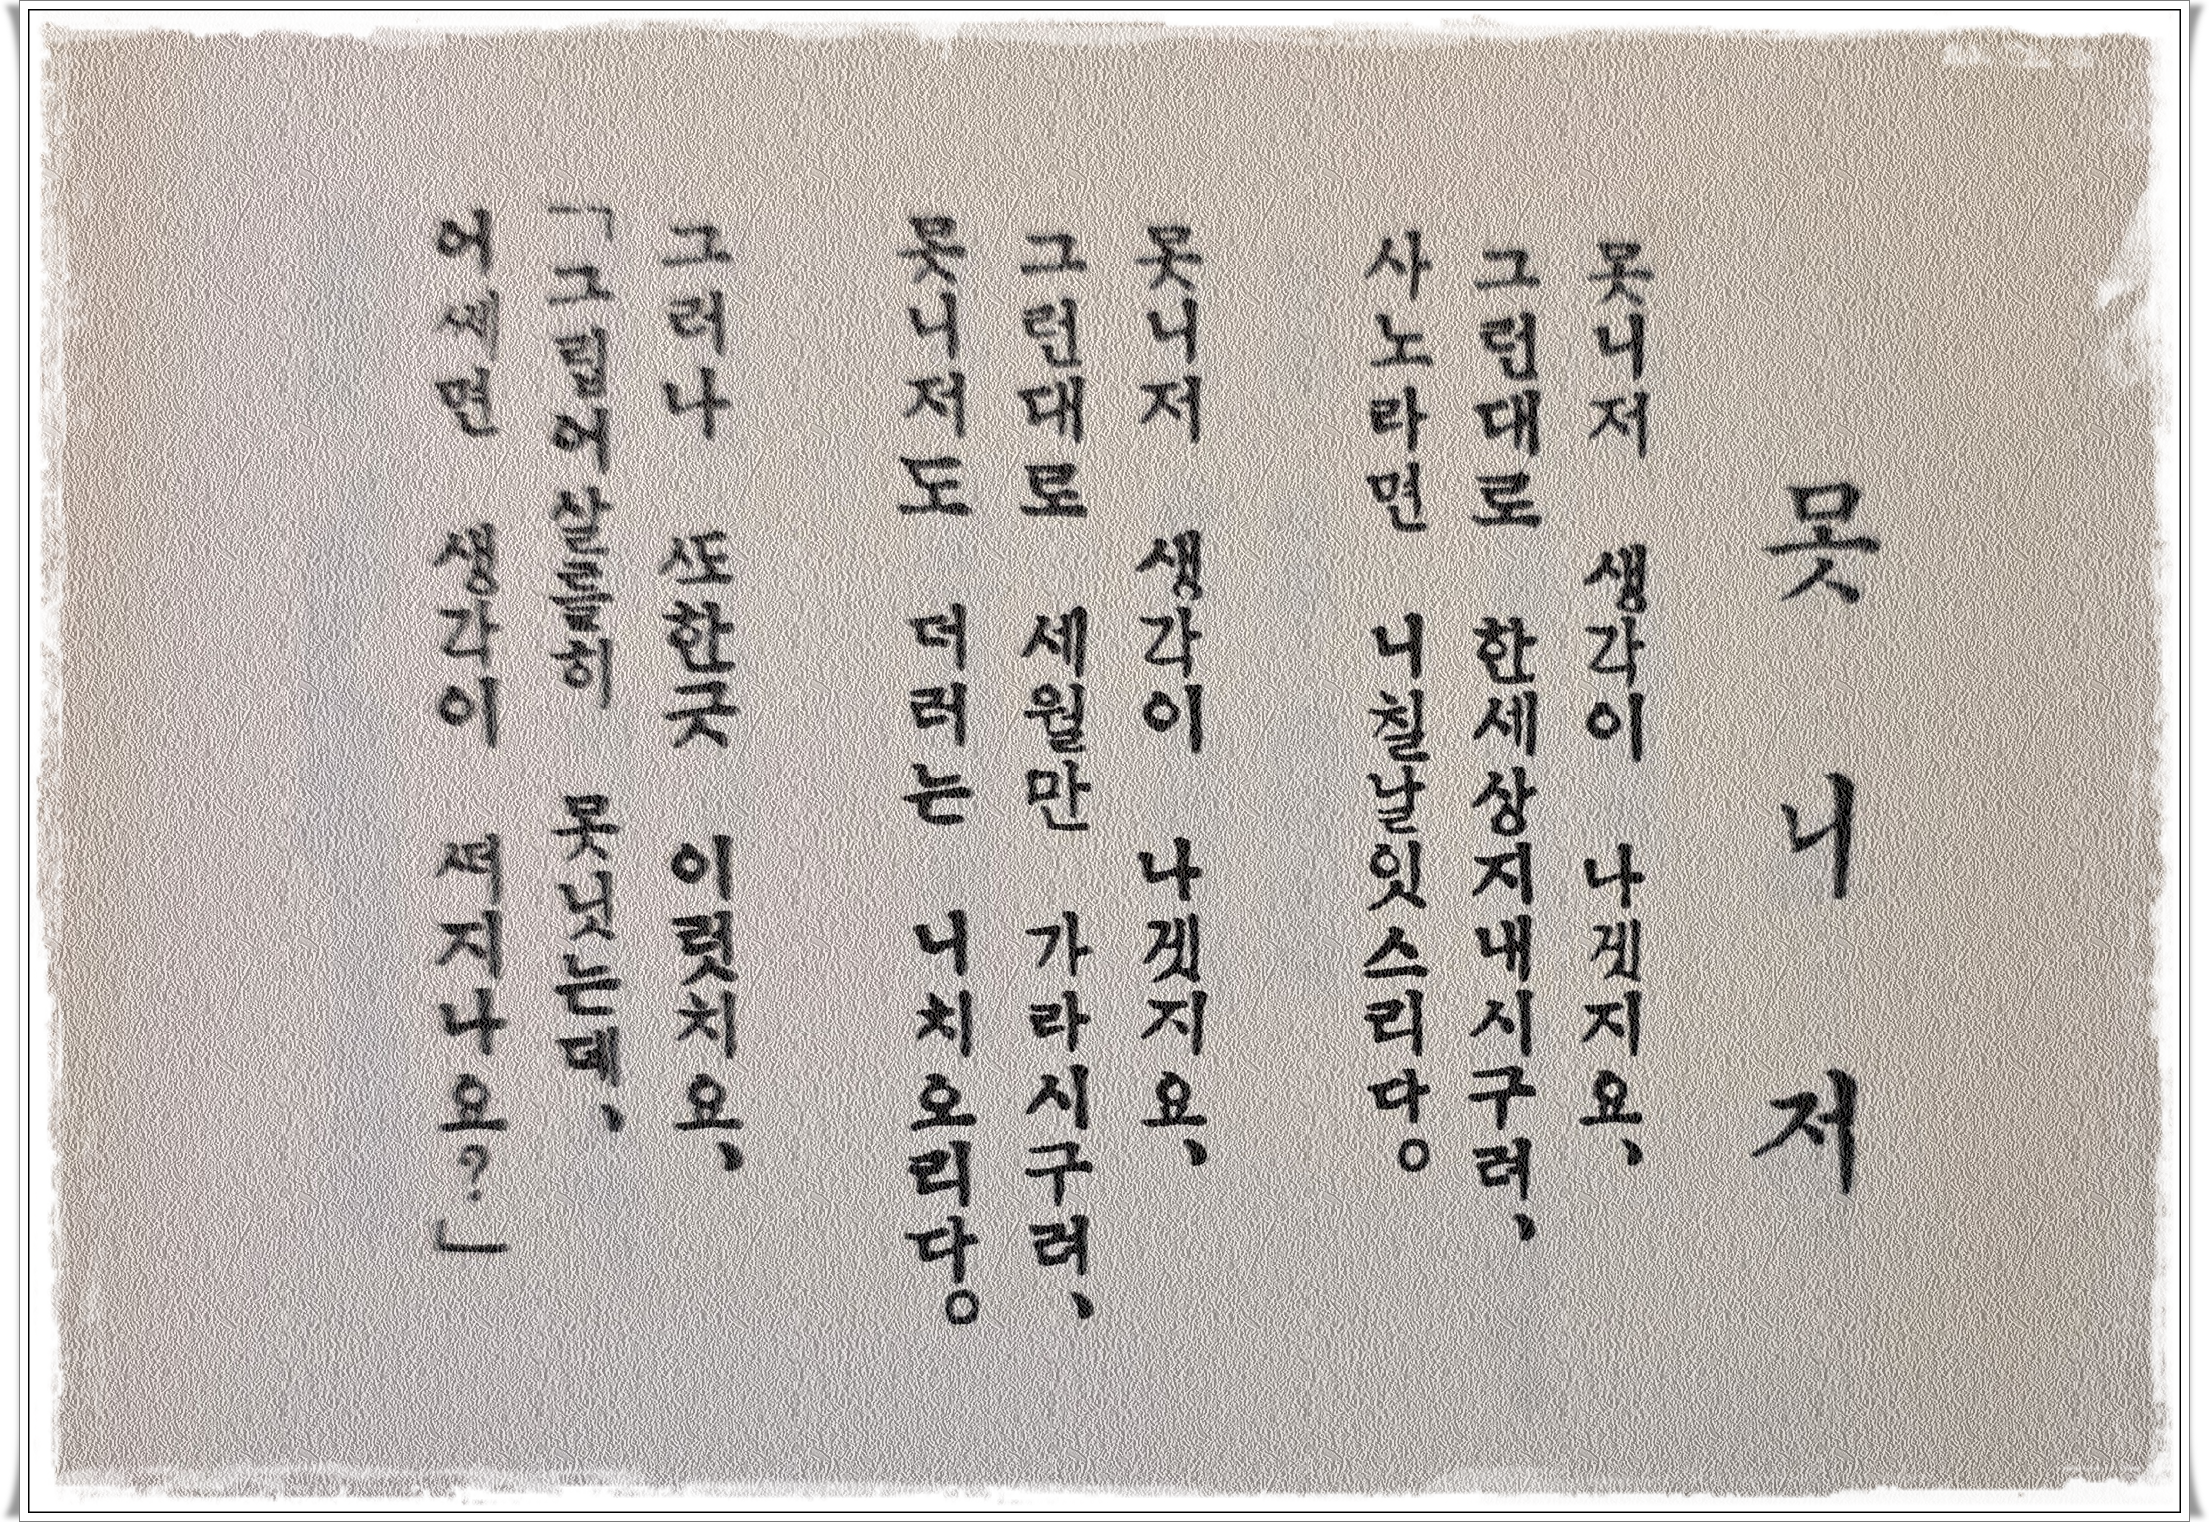 못니저
못니저 생각이 나겟지요、
그런대로 한세상지내시구려、
사노라면 니칠날잇스리다。
못니저 생각이 나겟지요、
그런대로 세월만 가라시구려、
못니저도 더러는 니치오리다。
그러나 ᄯᅩ한긋 이럿치요、
「그립어살틀히 못닛는데、
어ᄶᅦ면 생각이 ᄯᅥ지나요?」